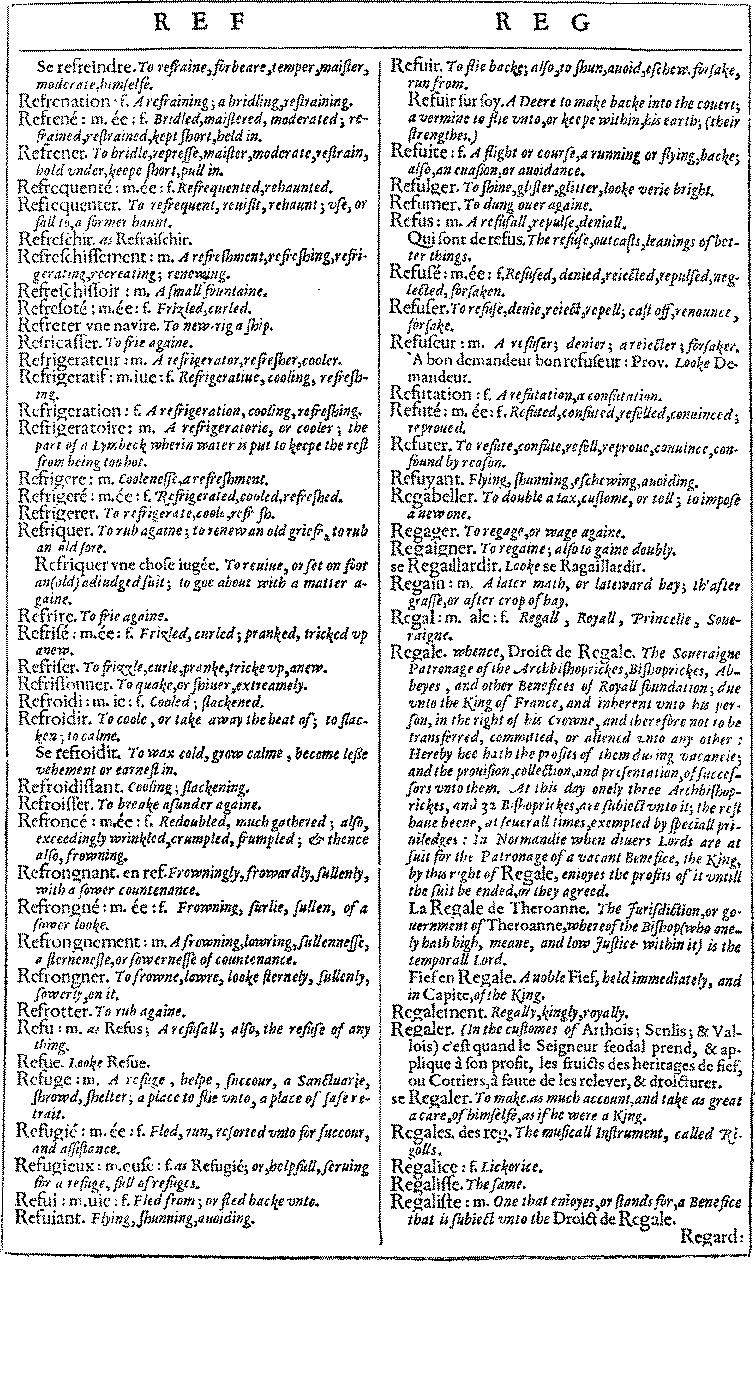 R E F
Se refreindre. To refraine, forbeare, temper, maiſter,
moderate, himſelfe.
Refrenation: f. A refraining; a bridling, reſtraining.
Refrené: m. ée: f. Bridled, maiſtered, moderated; re-
frained, reſtrained, kept ſhort, held in.
Refrener. To bridle, repreſſe, maiſter, moderate, reſtrain,
hold vnder, keepe ſhort, pull in.
Refrequenté: m. ée: f. Refrequented, rehaunted.
Refrequenter. To refrequent, reuiſit, rehaunt; vſe, or
fall to, a former haunt.
Refreſchir. as Refraiſchir.
Refreſchiſſement: m. A refreſhment, refreſhing, refri-
gerating, recreating; renewing.
Refreſchiſſoir: m. A ſmall fountaine.
Refreſoté: m. ée: f. Frizled, curled.
Refreter vne navire. To new-rig a ſhip.
Refricaſſer. To frie againe.
Refrigerateur: m. A refrigerator, refreſher, cooler.
Refrigeratif: m. iue: f. Refrigeratiue, cooling, refreſh-
ing.
Refrigeration: f. A refrigeration, cooling, refreſhing.
Refrigeratoire: m. A refrigeratorie, or cooler; the
part of a Lymbeck wherin water is put to keepe the reſt
from being too hot.
Refrigere: m. Cooleneſſe, a refreſhment.
Refrigeré: m. ée: f. Refrigerated, cooled, refreſhed.
Refrigerer. To refrigerate, coole, refreſh.
Refriquer. To rub againe; to renew an old griefe, to rub
an old ſore.
Refriquer vne choſe iugée. To reuiue, or ſet on foot
an (old) adiudged ſuit; to goe about with a matter a-
gaine.
Refrire. To frie againe.
Refriſé: m. ée: f. Frizled, curled; pranked, tricked vp
anew.
Refriſer. To frizzle, curle, pranke, tricke vp, anew.
Refriſſonner. To quake, or ſhiuer, extreamely.
Refroidi: m. ie: f. Cooled; ſlackened.
Refroidir. To coole, or take away the heat of; to ſlac-
ken; to calme.
Se refroidir. To wax cold, grow calme, become leſſe
vehement or earneſt in.
Refroidiſſant. Cooling; ſlackening.
Refroiſſer. To breake aſunder againe.
Refroncé: m. ée: f. Redoubled, much gathered; alſo,
exceedingly wrinkled, crumpled, frumpled; & thence
alſo, frowning.
Refrongnant. en ref. Frowningly, frowardly, ſullenly,
with a ſower countenance.
Refrongné: m. ée: f. Frowning, ſurlie, ſullen, of a
ſower looke.
Refrongnement: m. A frowning, lowring, ſullenneſſe,
a ſterneneſſe, or ſowerneſſe of countenance.
Refrongner. To frowne, lowre, looke ſternely, ſullenly,
ſowerly, on it.
Refrotter. To rub againe.
Refu: m. as Refus; A refuſall; alſo, the refuſe of any
thing.
Refue. Looke Refuë.
Refuge: m. A refuge, helpe, ſuccour, a Sanctuarie,
ſhrowd, ſhelter; a place to flie vnto, a place of ſafe re-
trait.
Refugié: m. ée: f. Fled, run, reſorted vnto for ſuccour,
and aſſiſtance.
Refugieux: m. euſe: f. as Refugié; or, helpfull, ſeruing
for a refuge, full of refuges.
Refui: m. uie: f. Fled from; or fled backe vnto.
Refuiant. Flying, ſhunning, auoiding.
R E G
Refuir. To flie backe; alſo, to ſhun, auoid, eſchew, forſake,
run from.
Refuir ſur ſoy. A Deere to make backe into the couert;
a vermine to flie vnto, or keepe within, his earth; (their
ſtrengthes.)
Refuite: f. A flight or courſe, a running or flying, backe;
alſo, an euaſion, or auoidance.
Refulger. To ſhine, gliſter, glitter, looke verie bright.
Refumer. To dung ouer againe.
Refus: m. A refuſall, repulſe, deniall.
Qui ſont de refus. The refuſe, outcaſts, leauings of bet-
ter things.
Refuſé: m. ée: f. Refuſed, denied, reiected, repulſed, neg-
lected, forſaken.
Refuſer. To refuſe, denie, reiect, repell; caſt off, renounce,
forſake.
Refuſeur: m. A refuſer; denier; a reiecter; forſaker.
A bon demandeur bon refuſeur: Prov. Looke De-
mandeur.
Refutation: f. A refutation, a confutation.
Refuté: m. ée: f. Refuted, confuted, refelled, conuinced;
reproued.
Refuter. To refute, confute, refell, reproue, conuince, con-
found by reaſon.
Refuyant. Flying, ſhunning, eſchewing, auoiding.
Regabeller. To double a tax, cuſtome, or toll; to impoſe
a new one.
Regager. To regage, or wage againe.
Regaigner. To regaine; alſo to gaine doubly.
se Regaillardir. Looke se Ragaillardir.
Regain: m. A later math, or lateward hay; th'after
graſſe, or after crop of hay.
Regal: m. ale: f. Regall, Royall, Princelie, Soue-
raigne.
Regale. whence, Droict de Regale. The Soueraigne
Patronage of the Archbiſhoprickes, Biſhoprickes, Ab-
beyes, and other Benefices of Royall foundation; due
vnto the King of France, and inherent vnto his per-
ſon, in the right of his Crowne, and therefore not to be
transferred, committed, or aliened vnto any other:
Hereby hee hath the profits of them during vacancie;
and the prouiſion, collection, and preſentation, of ſucceſ-
ſors vnto them. At this day onely three Archbiſhop-
rickes, and 32 Biſhoprickes, are ſubiect vnto it; the reſt
haue beene, at ſeuerall times, exempted by ſpeciall pri-
uiledges: In Normandie when diuers Lords are at
ſuit for the Patronage of a vacant Benefice, the King,
by this right of Regale, enioyes the profits of it vntill
the ſuit be ended, or they agreed.
La Regale de Theroanne. The Juriſdiction, or go-
uernment of Theroanne, whereof the Biſhop (who one-
ly hath high, meane, and low Juſtice within it) is the
temporall Lord.
Fief en Regale. A noble Fief, held immediately, and
in Capite, of the King.
Regalement. Regally, kingly, royally.
Regaler. (In the cuſtomes of Arthois; Senlis; & Val-
lois) c'eſt quand le Seigneur feodal prend, & ap-
plique à ſon profit, les fruicts des heritages de fief,
ou Cottiers, à faute de les relever, & droicturer.
se Regaler. To make as much account, and take as great
a care, of himſelfe, as if he were a King.
Regales. des reg. The muſicall Inſtrument, called Ri-
golls.
Regalice: f. Lickorice.
Regaliſſe. The ſame.
Regaliſte: m. One that enioyes, or ſtands for, a Benefice
that is ſubiect vnto the Droict de Regale.
Regard: